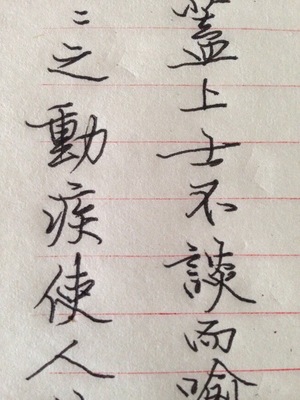 蓋上士不談而喻
之動疾使人